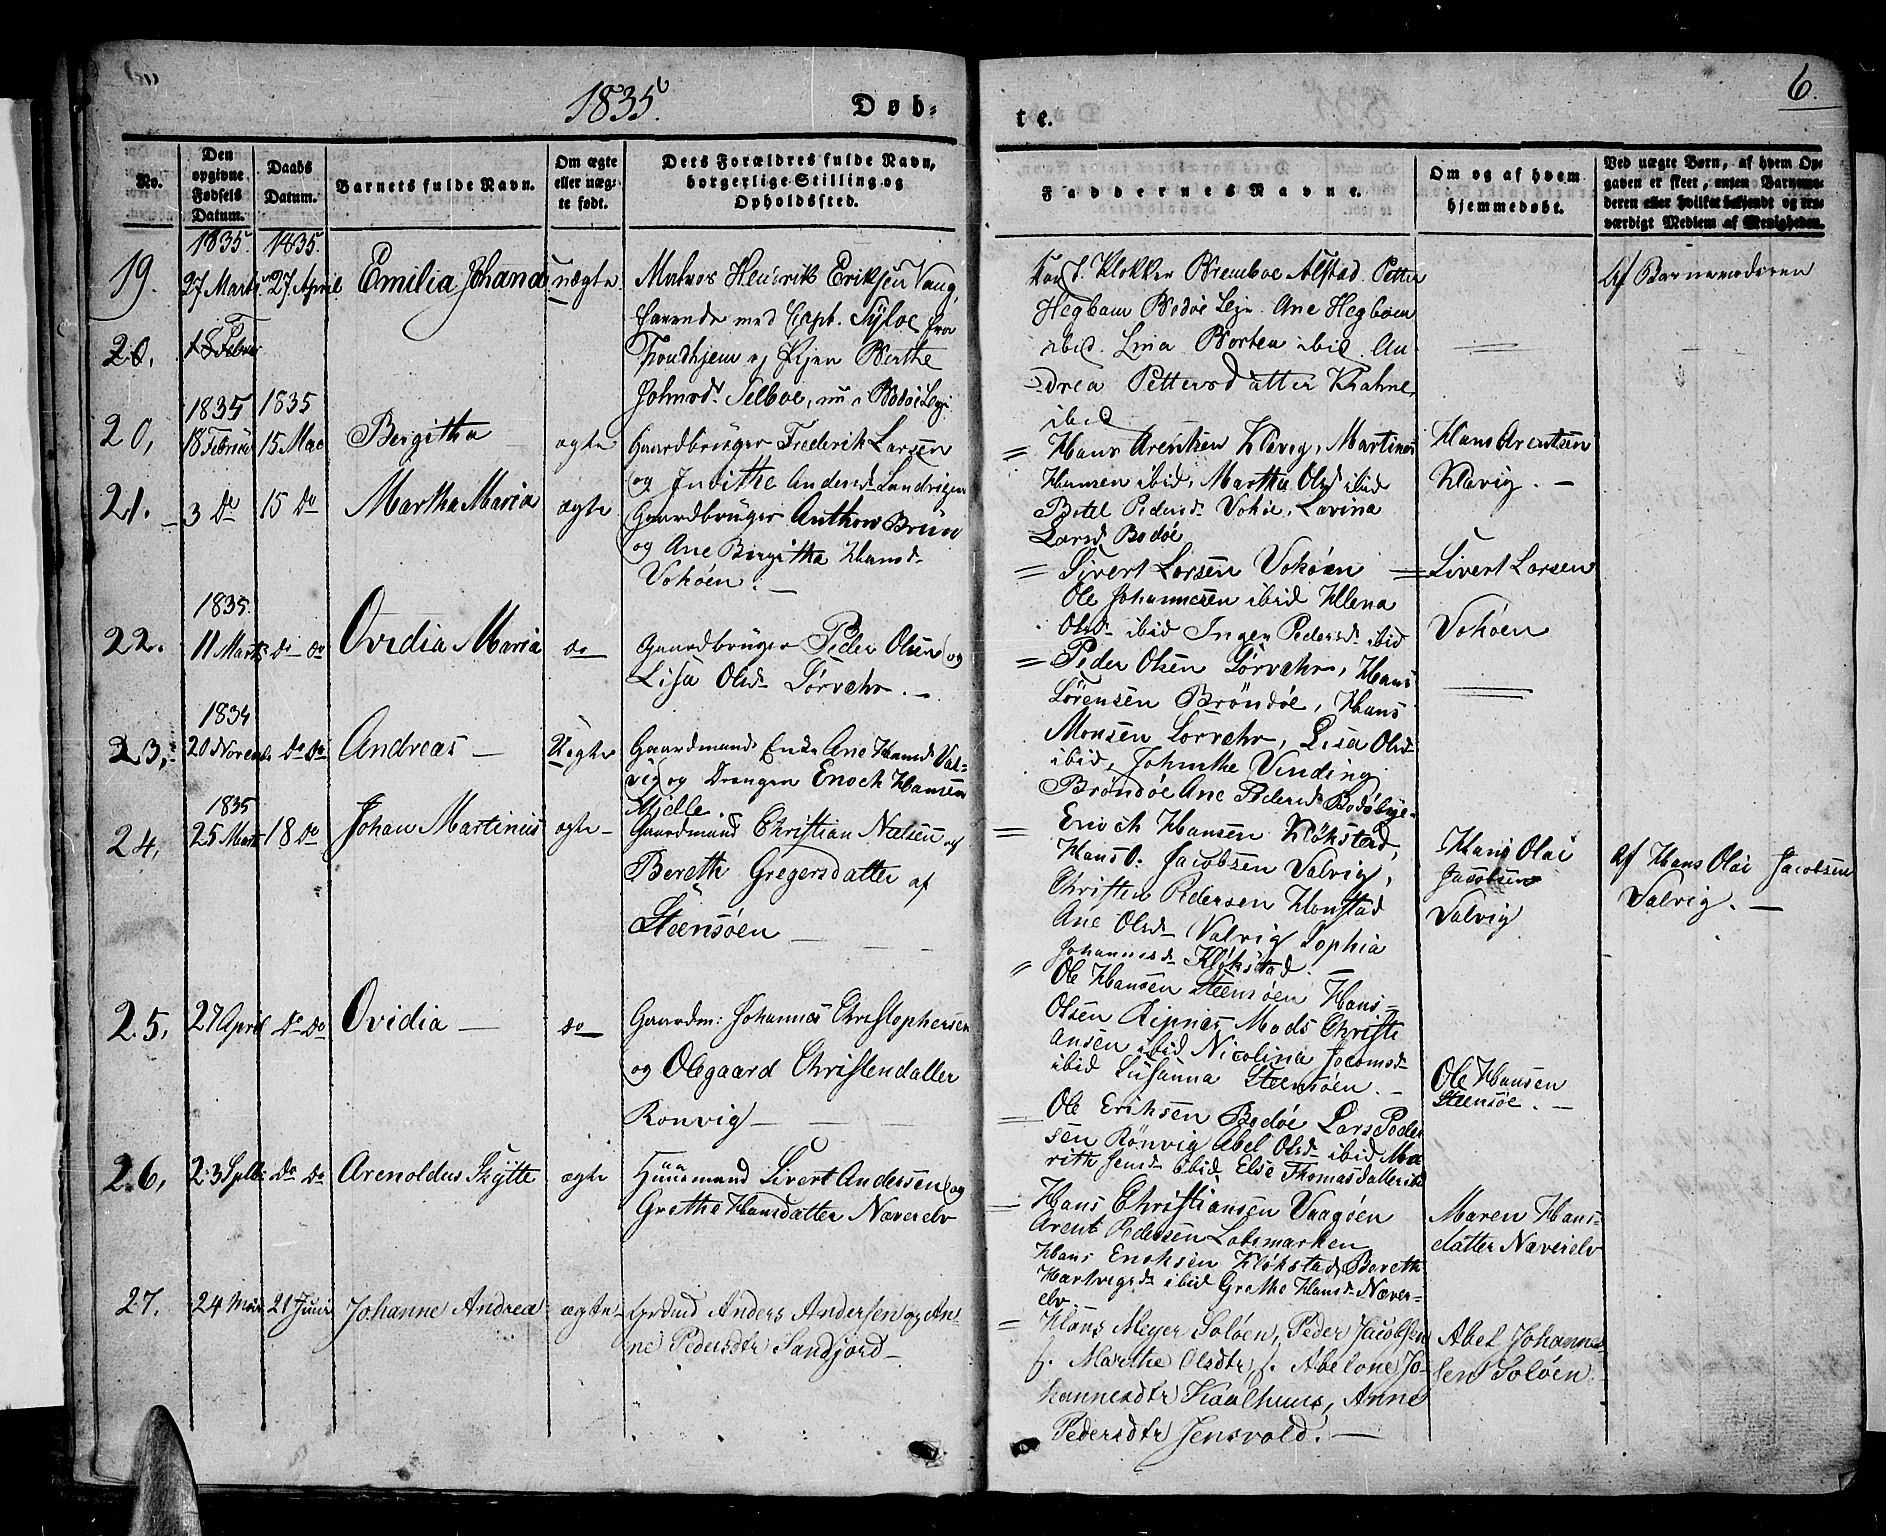 1835.
Døb-
te.
6.
No.
Den opgivne Fødsels Datum.
Daabs Datum.
Barnets fulde Navn.
Om ægte eller uægte født.
Dets Forældres fulde Navn, borgerlige Stilling og Opholdssted.
Faddernes Navne.
Om og af hvem hjemmedøbt.
Ved uægte Børn, af hvem Opgaven er skeet, enten Barnemoderen eller hvilket bekjendt og troværdigt Medlem af Menigheden.
19.
1835
27 Marts
1835
27 April
Emilia Johana
Uægte
Matros Henrik Eriksen Vang,
farende med Capt. Tyloe fra
Trondhjem og Pigen Berthe
Johnsd. Selboe, nu i Bodøe Leje
Klokker Bremboe Alstad. Petter
Hegbom Bodøe Leje. Ane Hegbom
ibid. Lina Borten ibid. An-
drea Pettersdatter Krahne,
ibid
Af Barnemoderen
20.
18 Febru
20,
1835
18 Februar
1835
15 Mai
Bergitha
ægte
Gaardbruger Frederik Larsen
og Judithe Andersd. Landrigen
= Hans Arentsen Kløvig, Martinus
Hansen ibid, Martha Olsd ibid
Betel Pedersd. Vokøe, Lavina
Larsd Bodøe
Hans Arentsen
Kløvig. -
21.
3 Do
15 Do
Martha Maria
ægte
Gaardbruger Anthon Brun
og Ane Birgitha Hansd.
Vokøen. -
= Sivert Larsen Vokøen
Ole Johannesen ibid Ellena
Olsd. ibid Inger Pedersd. ibid
= Sivert Larsen
Vokøen
22.
1835.
11 Marts
Do Do
Ovidia Maria
do
Gaardbruger Peder Olsen og
Lisa Olsd. Sørvær. -
= Peder Olsen Sørvær, Hans
Sørensen Brøndøe, Hans
Monsen Sorvær, Lisa Olsd.
ibid, Johnthe Vinding
Brøndøe Ane Pedersd. Bodøbye.
23,
1834
20 Novemb
Do Do
Andreas -
Uægte
Gaardmands Enke Ane Hansd. Val-
vig og Drengen Enoch Hansen
Mjelle.
= Enoch Hansen Kløkstad,
Hans O. Jacobsen Valvig,
Christen Pedersen Honstad
Ane Olsd. Valvig Sophia
Johannesd. Kløkstad. -
Hans Olai
Jacobsen
Valvig
Af Hans Olai Jacobsen
Valvig. -
24.
1835
25 Marts
18 Do
Johan Martinus
ægte -
Gaardmand Christian Nielsen og
Bereth Gregersdatter af
Steensøen -
= Ole Hansen Steensøen Hans
Olsen Ripnæs Mads Christi-
ansen ibid Nicolina Jacomsd.
ibid Susanna Steensøen. -
Ole Hansen
Steensøe. -
25,
27 April
Do Do
Ovidia -
do
Gaardm: Johannes Christophersen
og Olegaard Christendatter
Ronvig -
= Ole Eriksen Bodøe Lars Peder
sen Rønvig Abel Olsd. ibid Ma
rith Jensd. ibid Else Thomasdatter ibid
26,
23
Do Do
Arenoldus Skytte
ægte
Huusmand Sivert Andersen og
Grethe Hansdatter Næverelv
= Hans Christiansen Vaagøen
Arent Pedersen Løbsmarken
Hans Enoksen Kløkstad, Bereth
Hartvigsd. ibid Grethe Hansd. Næver-
elv.
Maren Hans-
datter Næverelv
27.
24 Mai
21 Juni
Johanne Andrea
ægte
Anders Andersen og An-
ne Pedersdtr Sandjord -
= Hans Meyer Soløen, Peder Jacobsen
s. Marthe Olsdtr, s. Abelone Jo-
hannesdtr Kaalhuus, Anne
Pedersdtr Jensvold. -
Abel Johanne-
sen Soløen.